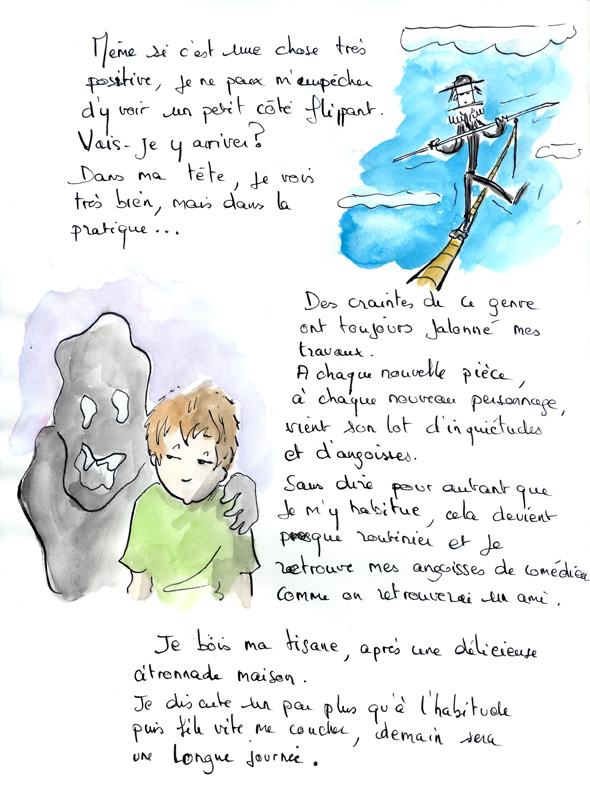 Même si c'est une chose très
positive, je ne peux m'empêcher
d'y voir un petit côté flippant.
Vais-je y arriver?
Dans ma tête, je vois
très bien, mais dans la
pratique...
Des craintes de ce genre
ont toujours jalonné mes
travaux.
A chaque nouvelle pièce,
à chaque nouveau personnage,
vient son lot d'inquiétudes
et d'angoisses.
Sans dire pour autant que
je m'y habitue, cela devient
presque routinier et je
retrouve mes angoisses de comédien
comme on retrouverai un ami.
Je bois ma tisane, après une délicieuse
citronnade maison.
Je discute un peu plus qu'à l'habitude
puis file vite me coucher, demain sera
une longue journée.